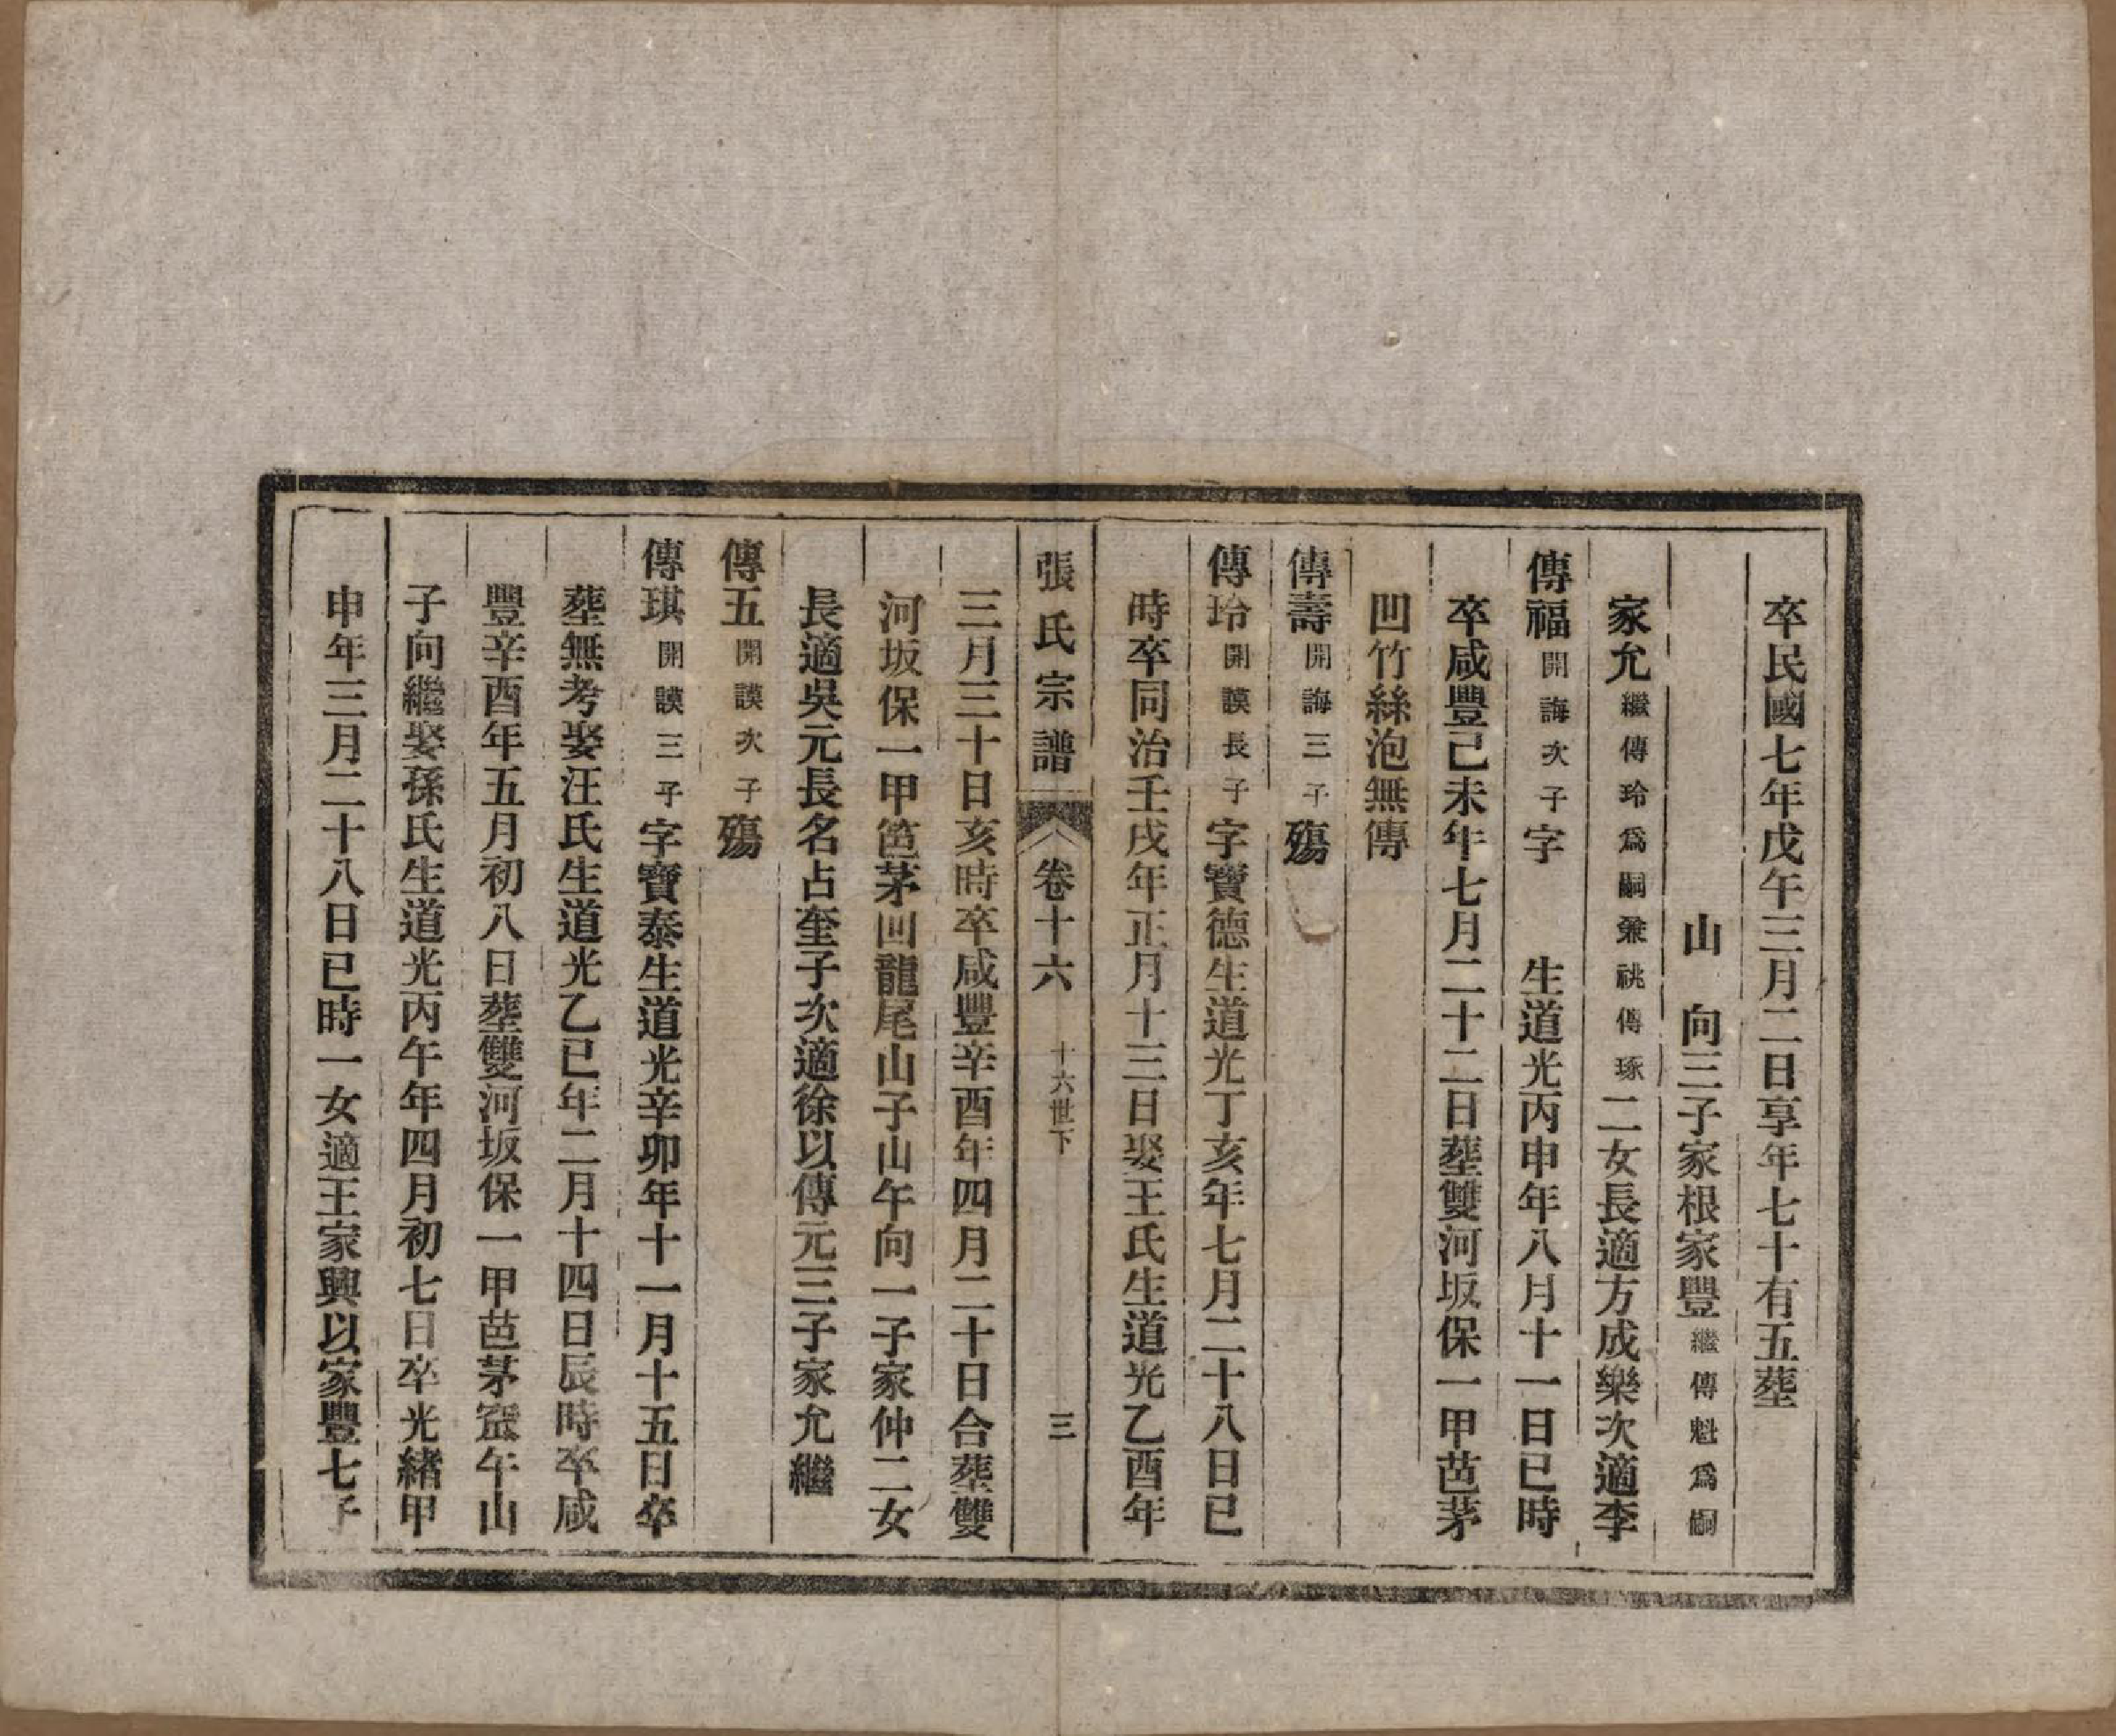 卒民國七年戊午三月二日享年七十有五葬
山　向三子家根家豐繼傳魁爲嗣
家允繼傳玲爲嗣兼祧傳琢二女長適方成樂次適李
傳福開誨次子字　　生道光丙申年八月十一日巳時
卒咸豐己未年七月二十二日葬雙河坂保一甲芭茅
凹竹絲泡無傳
傳壽開誨三子殤
傳玲開謨長子字寶德生道光丁亥年七月二十八日巳
時卒同治壬戌年正月十三日娶王氏生道光乙酉年
張氏宗譜　卷十六　十六世下　三
三月三十日亥時卒咸豐辛酉年四月二十日合葬雙
河坂保一甲笆茅回龍尾山子山午向一子家仲二女
長適吳元長名占奎子次適徐以傳元三子家允繼
傳五開謨次子殤
傳琪開謨三子字寶泰生道光辛卯年十一月十五日卒
葬無考娶汪氏生道光乙巳年二月十四日辰時卒咸
豐辛酉年五月初八日葬雙河坂保一甲芭茅窊午山
子向繼娶孫氏生道光丙午年四月初七日卒光緒甲
申年三月二十八日巳時一女適王家興以家豐七子